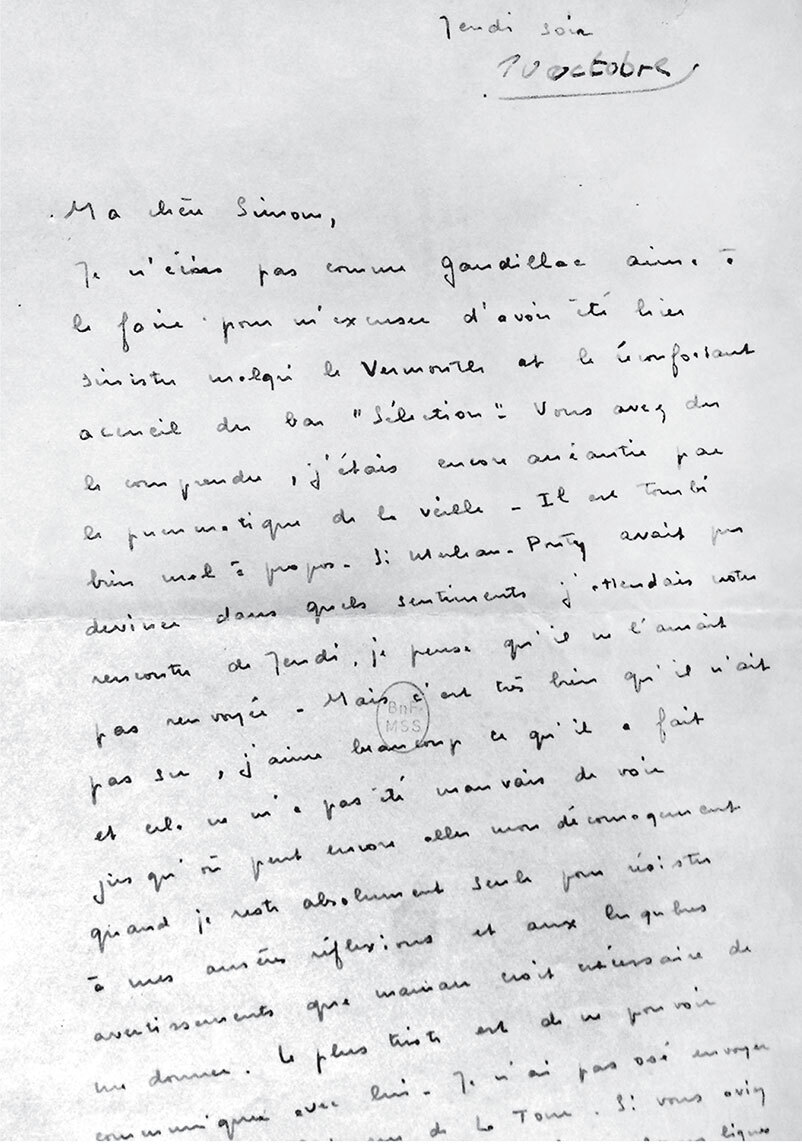 Jeudi soir
10 octobre
Ma chère Simone,
Je n'écris pas comme Gandillac aime à
le faire pour m'excuser d'avoir été hier
sinistre malgré le Vermouth et le réconfortant
accueil du bar "Sélection" - Vous avez dû
le comprendre, j'étais encore anéantie par
le pneumatique de la veille - Il est tombé
bien mal à propos - Si Merleau-Ponty avait pu
deviner dans quels sentiments j'attendais notre
rencontre de Jeudi, je pense qu'il ne l'aurait
pas renvoyée - Mais c'est très bien qu'il n'ait
BnF
MSS
pas su, j'aime beaucoup ce qu'il a fait
et cela ne m'a pas été mauvais de voir
jusqu'où peut encore aller mon découragement
quand je reste absolument seule pour résister
à mes amères réflexions et aux lugubres
avertissements que maman croit nécessaire de
me donner. Le plus triste est de ne pouvoir
communiquer avec lui - Je n'ai pas osé envoyer
de La Tour. Si vous aviez
lignes